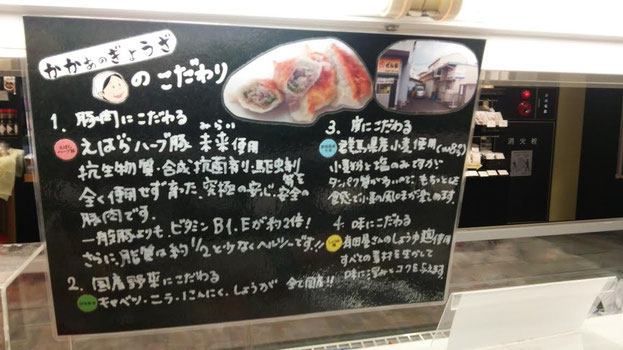 かかあのぎょうざ
のこだわり
1. 豚肉にこだわる
えばらハーブ豚 未来使用
みらい
抗生物質・合成抗菌剤・駆虫剤等を
全く使用せず育った、究極の安心、安全の
豚肉です。
一般豚よりも、ビタミンB1.Eが約2倍!
さらに、脂質は約1/2と少なくヘルシーです!!
2. 国産野菜にこだわる
キャベツ・ニラ・にんにく、しょうが 全て国産!!
3. 皮にこだわる
群馬県産小麦使用
小麦粉と塩のみですが
タンパク質が多いので、もちっとした
食感で小麦の風味が楽しめます。
4. 味にこだわる
有田屋さんのしょうゆ麹使用
すべての素材を生かして
味に深みとコクを与えます。
消火栓